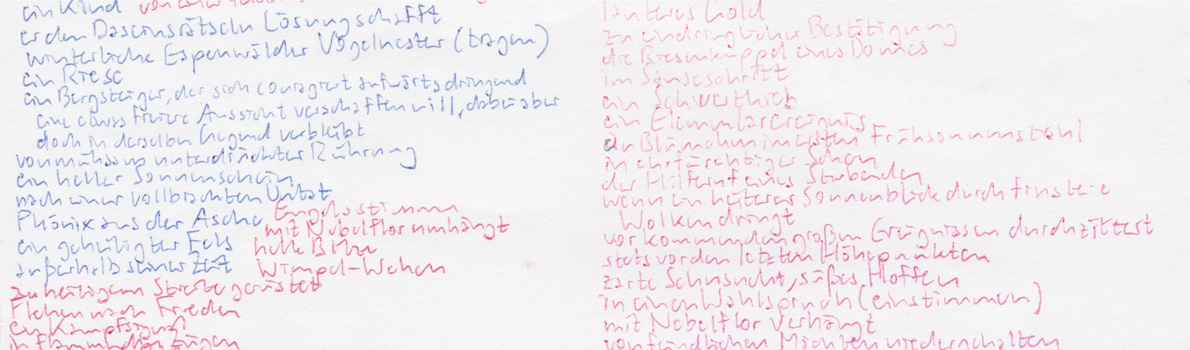 ein Kind
er den Daseinsrätseln Lösung schafft
winterliche Espenwälder Vogelnester (tragen)
ein Riese
ein Bergsteiger, der sich couragiert aufwärts dringend
eine etwas freiere Aussicht verschaffen will, dabei aber
doch in derselben Gegend verbleibt
von mühsam unterdrückter Rührung
ein heller Sonnenschein
nach einer vollbrachten Untat
Phönix aus der Asche
ein geheiligter Fels
außerhalb seiner Zeit
Engelsstimmen
mit Nebelflor umhängt
helle Blitze
Wimpel-Wehen
zu heiligem Streite gerüstet
Flehen nach Frieden
ein Kampfsignal
in flammenden Zügen
lauteres Gold
zu eindringlicher Bestätigung
die Riesenkuppel eines Domes
im Sauseschritt
ein Schwerthieb
ein Elementarereignis
ein Blümchen im ersten Frühsonnenstrahl
in ehrfürchtiger Scheu
der Hilferuf eines Sterbenden
wenn ein heiterer Sonnenblick durch finstere
Wolken dringt
vor kommenden großen Ereignissen durchzittert
stets vor den letzten Höhepunkten
zarte Sehnsucht, süßes Hoffen
in einen Wahlspruch (einstimmen)
mit Nebelflor verhängt
von feindlichen Mächten niederhalten